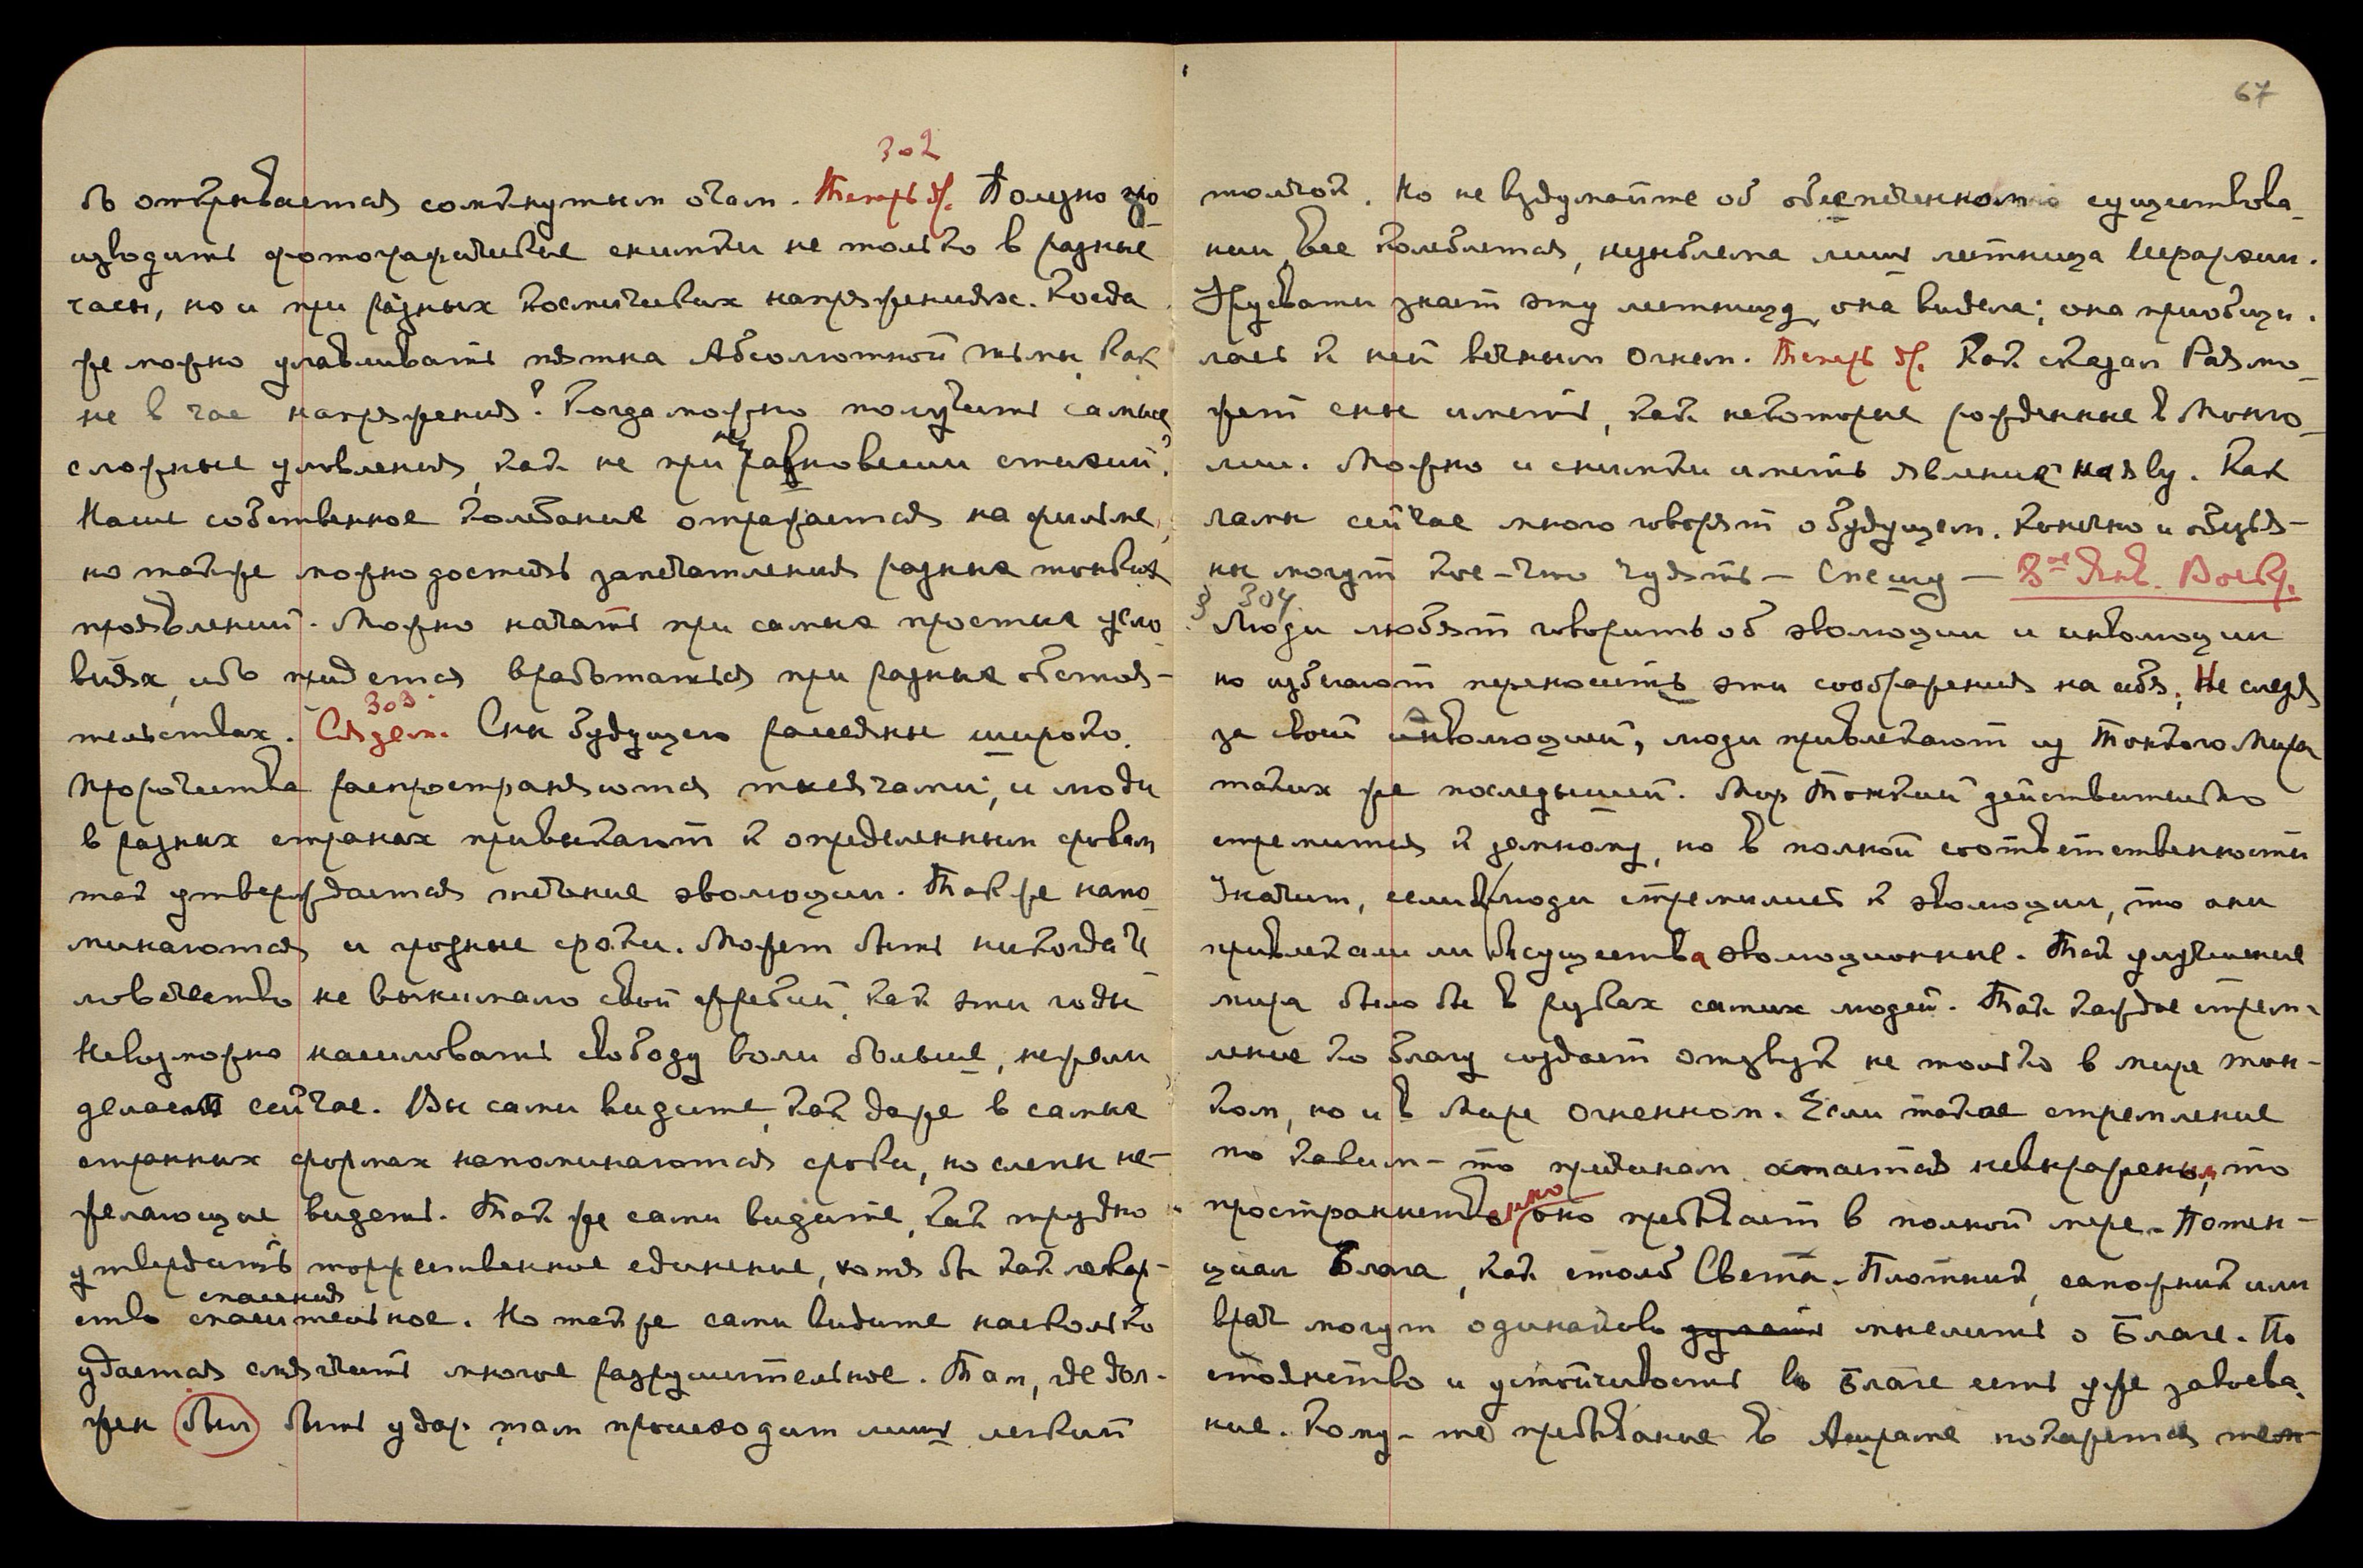 302
ь открывается сомкнутым очам. Теперь др. Полезно про-
изводить фотографические снимки не только в разные
часы, но и при разных космических напряжениях. Когда
же можно улавливать пятна Абсолютной тьмы, как
не в час напряжения? Когда можно получить самые
сложные уловления, как не при неравновесии стихий?
Наше собственное колебание отражается на фильме,
но также можно достичь запечатления разных тонких
проявлений. Можно начать при самых простых усло-
виях, ибо придется вработаться при разных обстоя-
303
тельствах. След. Сны будущего рассеяны широко.
Пророчества распространяются тысячами, и люди
в разных странах привыкают к определенным срокам
так утверждается течение эволюции. Также напо-
минаются и грозные сроки. Может быть никогда че-
ловечество не вынимало свой жребий, как эти годы
Невозможно насиловать свободу воли больше, нежели
делаем сейчас. Вы сами видите, как даже в самых
странных формах напоминаются сроки, но слепы не-
желающие видеть. Так же сами видите, как трудно
утвердить торжественное единение, хотя бы как лекар-
спасения
ство спасительное. Но также сами видите насколько
удается смягчить многое разрушительное. Там, где дол-
жен был быть удар, там происходит лишь легкий
67
толчок. Но не вздумайте об обеспеченности существова-
нии, все колеблется, незыблема лишь лестница Иерархии.
Урусвати знает эту лестницу, она видела; она приобщи-
лась к ней вечным Огнем. Теперь др. Как сказал Раз мо-
жет сны иметь, как некоторые рожденные в Монго-
лии. Можно и снимки иметь явления наяву. Как
ламы сейчас много говорят о будущем. Конечно и обезья-
ны могут кое-что чуять — Спешу — 8ое Янв. Воскр.
§ 304
Люди любят говорить об эволюции и инволюции
но избегают переносить эти соображения на себя. Не следя
за своей инволюцией, люди привлекают из Тонкого Мира
таких же последышей. Мир Тонкий действительно
стремится к земному, но в полной соответственности
Значит, если люди стремились к эволюции, то они
привлекали ли бы существа эволюционные. Так улучшение
мира было бы в руках самих людей. Так каждое стрем-
ление ко благу создает отзвук не только в мире тон-
ком, но и в Мире Огненном. Если такое стремление
по каким-то причинам остается невыраженным, то
пространственно оно пребывает в полной мере. Потен-
циал Блага, как столб Света. Плотник, сапожник или
врач могут одинаково думать мыслить о Благе. По
стоянство и устойчивость во Благе есть уже завоева-
ние. Кому-то пребывание в Ашраме покажется тем-